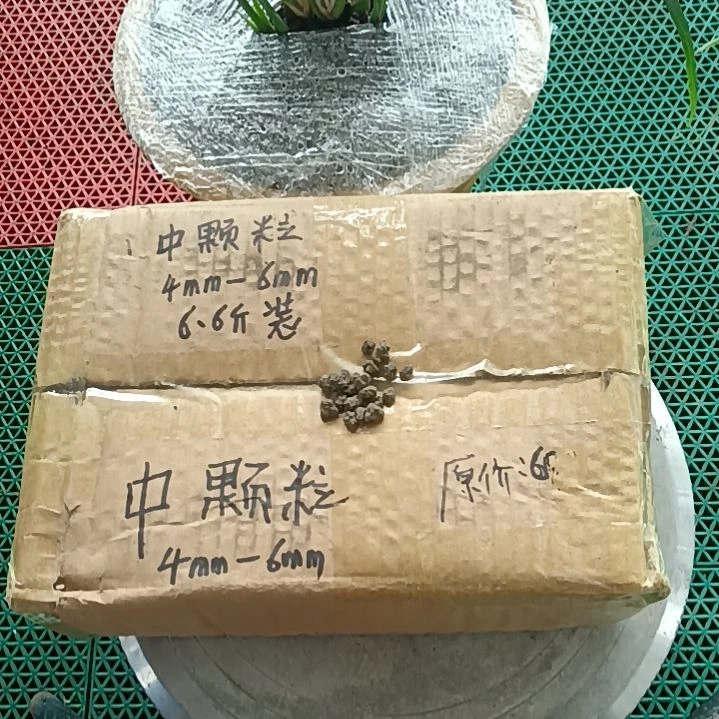 中颗粒
4mm-6mm
6.6斤装
中颗粒
原价:
4mm-6mm